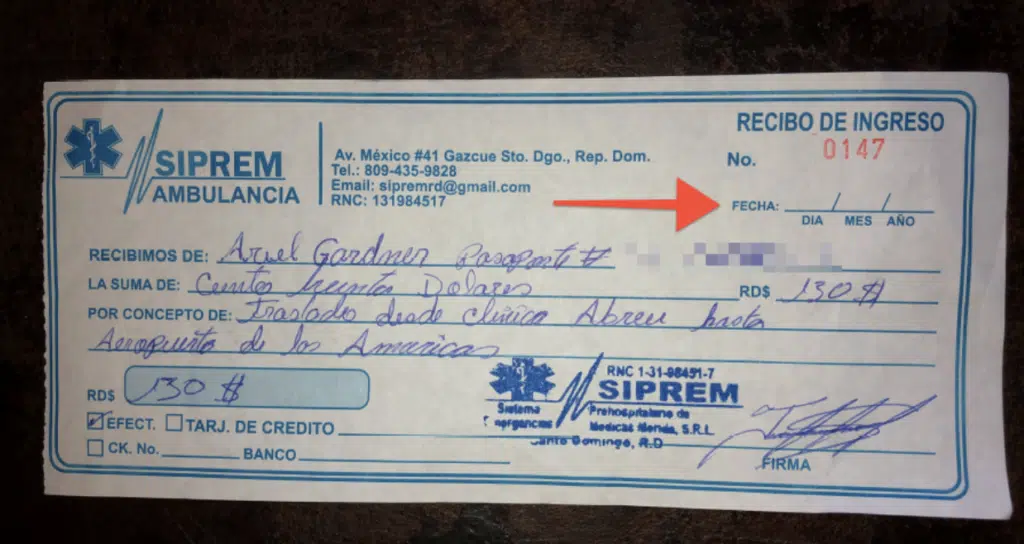 RECIBO DE INGRESO
No. 0147
SIPREM
AMBULANCIA
Av. México #41 Gazcue Sto. Dgo., Rep. Dom.
Tel.: 809-435-9828
Email: sipremrd@gmail.com
RNC: 131984517
FECHA: / /
DIA MES AÑO
RECIBIMOS DE: Ariel Gardner Pasaporte #
LA SUMA DE: Cientos treinta Dolares RD$ 130 $
POR CONCEPTO DE: Traslado desde clinica Abreu hasta
Aeropuerto de los Amaricas
RD$ 130 $
EFECT. TARJ. DE CREDITO
CK. No. BANCO
RNC 1-31-98451-7
SIPREM
Sistema Prehospitalario de
Emergencias Medicas Merida, S.R.L
Santo Domingo, R.D
FIRMA